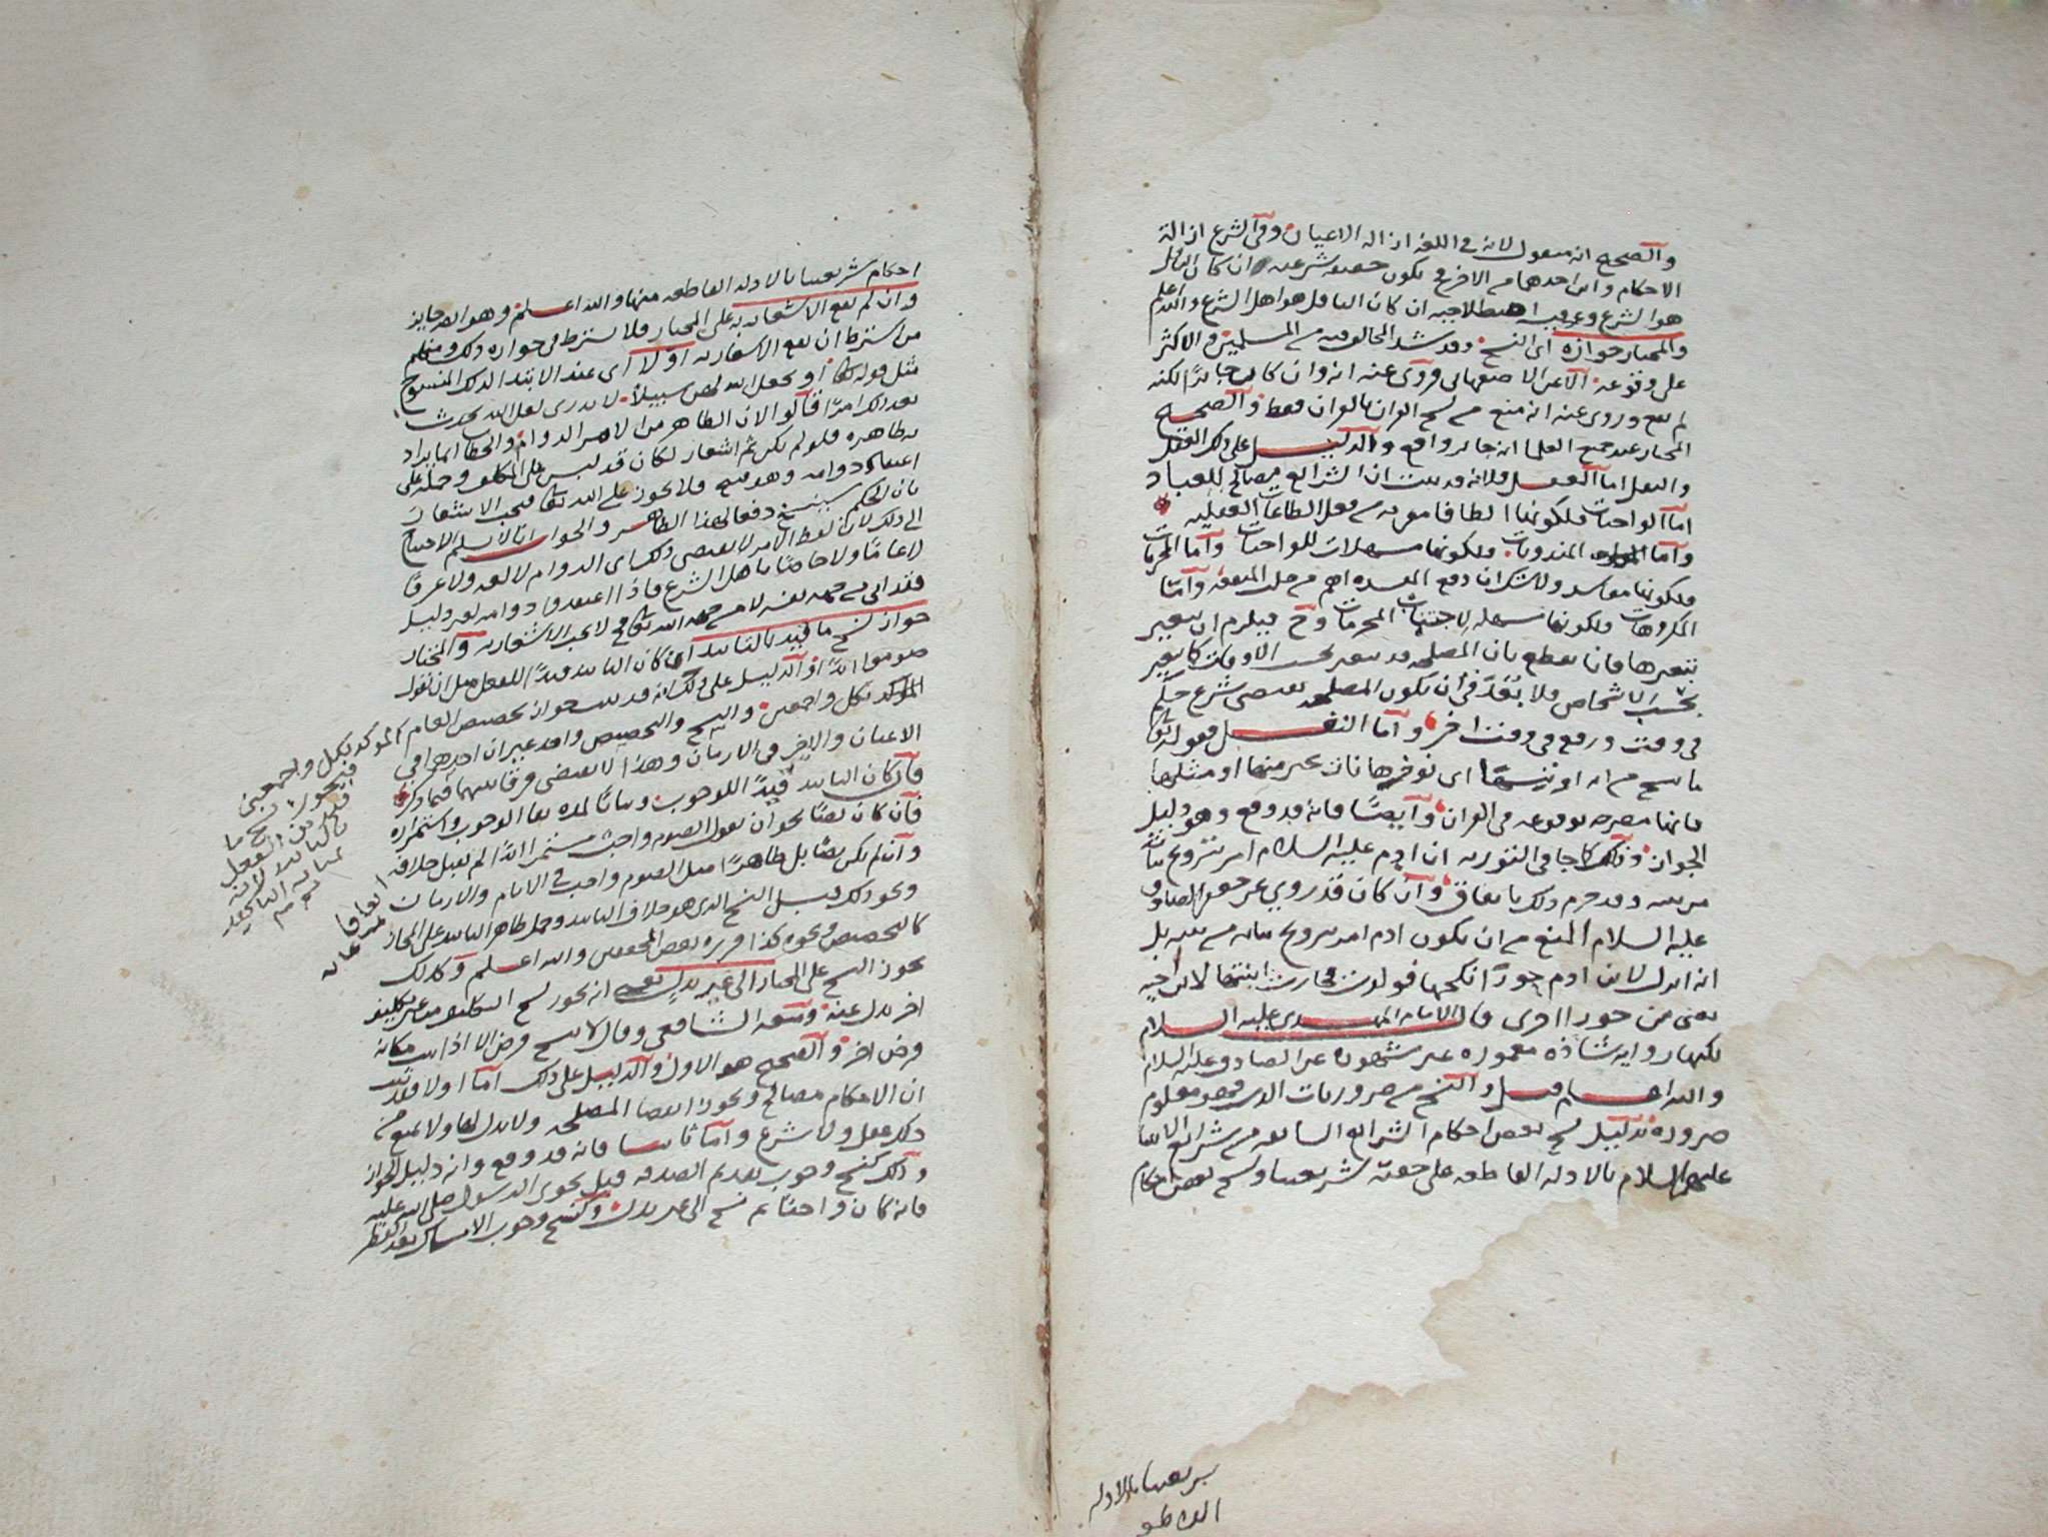 والصحيح انه منقول لانه في اللغه ازاله الاعيان وفي الشرع ازالة
الاحكام واين احدهما من الاخر فيكون حقيقه شرعيه ان كان الناقل
هو الشرع وعرفيه اصطلاحيه ان كان الناقل هو اهل الشرع والله اعلم
والمختار جوازه اي النسخ وقد شذ المخالف فيه من المسلمين والاكثر
على وقوعه الا عن الاصفهاني فروي عنه انه وان كان جائزا لكنه
لم يقع وروي عنه انه منع من نسخ القران بالقران فقط والصحيح
المختار عند جميع العلما انه جائز واقع والدليل على ذلك العقل
والنقل اما العقل فلانه قد ثبت ان الشرائع مصالح للعباد
اما الواجبات فلكونها الطافا مقربه من فعل الطاعات العقليه
واما المندوبات فلكونها مسهلات للواجبات واما المحرمات
فلكونها مفاسد ولا شك ان دفع المفسده اهم من جلب المنفعه واما
المكروهات فلكونها مسهله لاجتناب المحرمات وح فيلزم ان يتغير
بتغيرها فانا نقطع بان المصلحه قد تتغير بحسب الاوقات كما يتغير
بحسب الاشخاص ولا بُعْدَ في أن يكون المصلحه تقتضي شرع حكم
في وقت ورفعه في وقت اخر واما النقل فقوله تعالى
ما ننسخ من ايه او ننسها اي نؤخرها نات بخير منها او مثلها
فانها مصرحه بوقوعه في القران وايضًا فانه قد وقع وهو دليل
الجواز وذلك كما جا في التوريه ان ادم عليه السلام امر بتزويج بناته
من بنيه وقد حرم ذلك باتفاق وان كان قد روي عن جعفر الصادق
عليه السلام المنع من ان يكون ادم امر بتزويج بناته من بنيه بل
انه انزل لابن ادم حورًا انكحها فولدت فجازت ابنتها لابن اخيه
يعني من حورا اخرى قال الامام المهدي عليه السلام
لكنها روايه شاذه مغموره عن شحونه عن الصادق عليه السلام
والله اعلم قيل والنسخ من ضروريات الدين فهو معلوم
ضرورة بدليل نسخ بعض احكام الشرائع السابقه من شرائع الانبيا
عليهم السلام بالادله القاطعه على حقيه شريعتنا ونسخ بعض احكام
شريعتنا بالادله
القاطعه
احكام شريعتنا بالادله القاطعه منها والله اعلم وهو ايضا جايز
وان لم يقع الاشعار به على المختار ولا يشترط في جوازه ذلك ومنهم
من اشترط ان يقع الاشعار به اولا اي عند الابتدا لذلك المنسوخ
مثل قوله تعالى أو يجعل الله لهن سبيلا لا تدري لعل الله يحدث
بعد ذلك امرًا قالوا لان الظاهر من الامر الدوام والخطاب انما يراد
به ظاهره فلو لم يكن ثم اشعار لكان قد لبس على المكلف وحمله على
اعتقاد دوامه وهو قبيح فلا يجوز على الله تعالى فيجب الاشعار
بان الحكم سينسخ دفعا لهذا الظاهر والجواب انا لا نسلم الاحتياج
الى ذلك لان لفظ الامر لا يقتضي ذلك اي الدوام لا لغه ولا عرفا
لا عامًا ولا خاصًا باهل الشرع فاذا اعتقد دوامه لغير دليل
فقد اتي من جهه نفسه لا من جهه الله تعالى فلا يجب الاشعار به والمختار
جواز نسخ ما قُيِّد بالتابيد اذا كان التابيد قيدًا للفعل مثل ان نقول
صوموا ابدًا والدليل على ذلك انه قد ثبت جواز تخصيص العام المؤكد بكل واجمعين
المؤكد بكل واجمعين والنسخ والتخصيص واحد غير ان احدهما في
الاعيان والاخر في الازمان وهذا لا يقتضي فرقا بينهما فيما ذكر
فان كان التابيد قيدًا للوجوب وبيانًا لمده بقا الوجوب واستمراره
فان كان نصًا نحو ان نقول الصوم واجب مستمر ابدًا لم يقبل خلافه
وان لم يكن نصًا بل ظاهرًا مثل الصوم واجب في الايام والازمان
ونحو ذلك قبل النسخ الذي هو خلاف التابيد وحمل ظاهر التابيد على المجاز
كالتخصيص ونحوه كذا قرره بعض المحققين والله اعلم وكذلك
يجوز النسخ على المختار الى غير بدل بمعنى انه يجوز نسخ التكليف من غير تكليف
اخر بدل عنه ومنعه الشافعي وقال لا ينسخ فرض الا اذا اثبت مكانه
فرض اخر والصحيح هو الاول والدليل على ذلك اما اولا فقد ثبت
ان الاحكام مصالح ويجوز انقضا المصلحه ولا بدل لها ولا يمنع من
ذلك عقل ولا شرع واما ثانيا فانه قد وقع وانه دليل الجواز
وذلك كنسخ وجوب تقديم الصدقه قبل نجوى الرسول صلى الله عليه
فانه كان واجبا ثم نسخ الى غير بدل وكنسخ وجوب الامساك بعد الفطر
فيجوز نسخ ما
قيد من الفعل
بالتابيد لانه